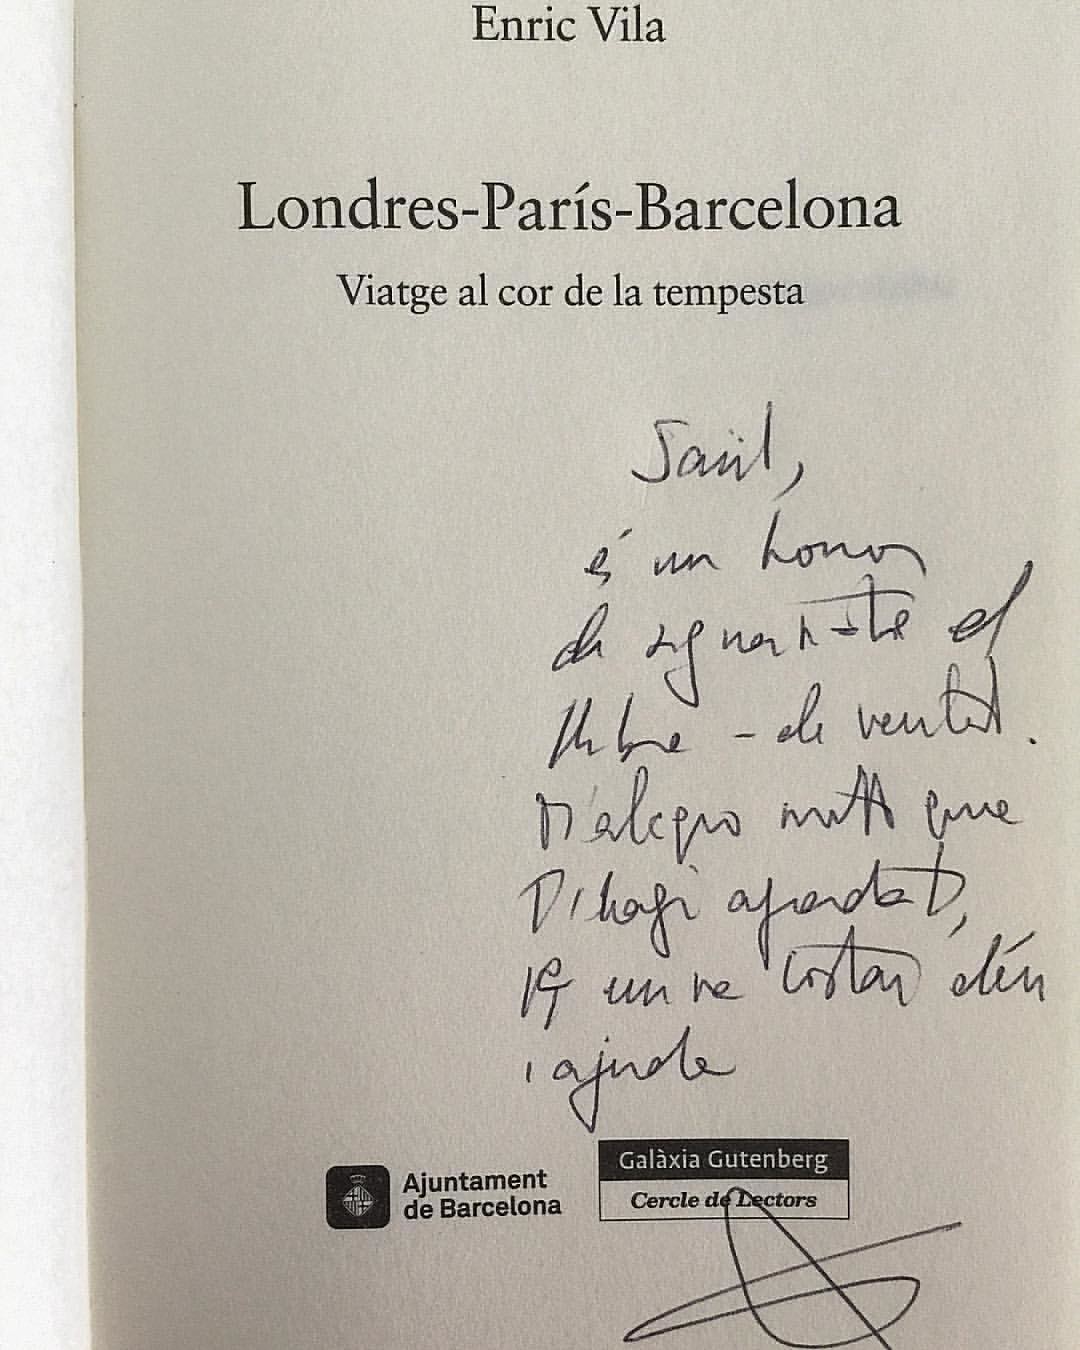 Enric Vila
Londres-París-Barcelona
Viatge al cor de la tempesta
Saül,
és un honor
de signar-te el
llibre - de veritat.
M'alegro molt que
t'hagi agradat,
em va costar
i ajuda
Ajuntament
de Barcelona
Galàxia Gutenberg
Cercle de Lectors